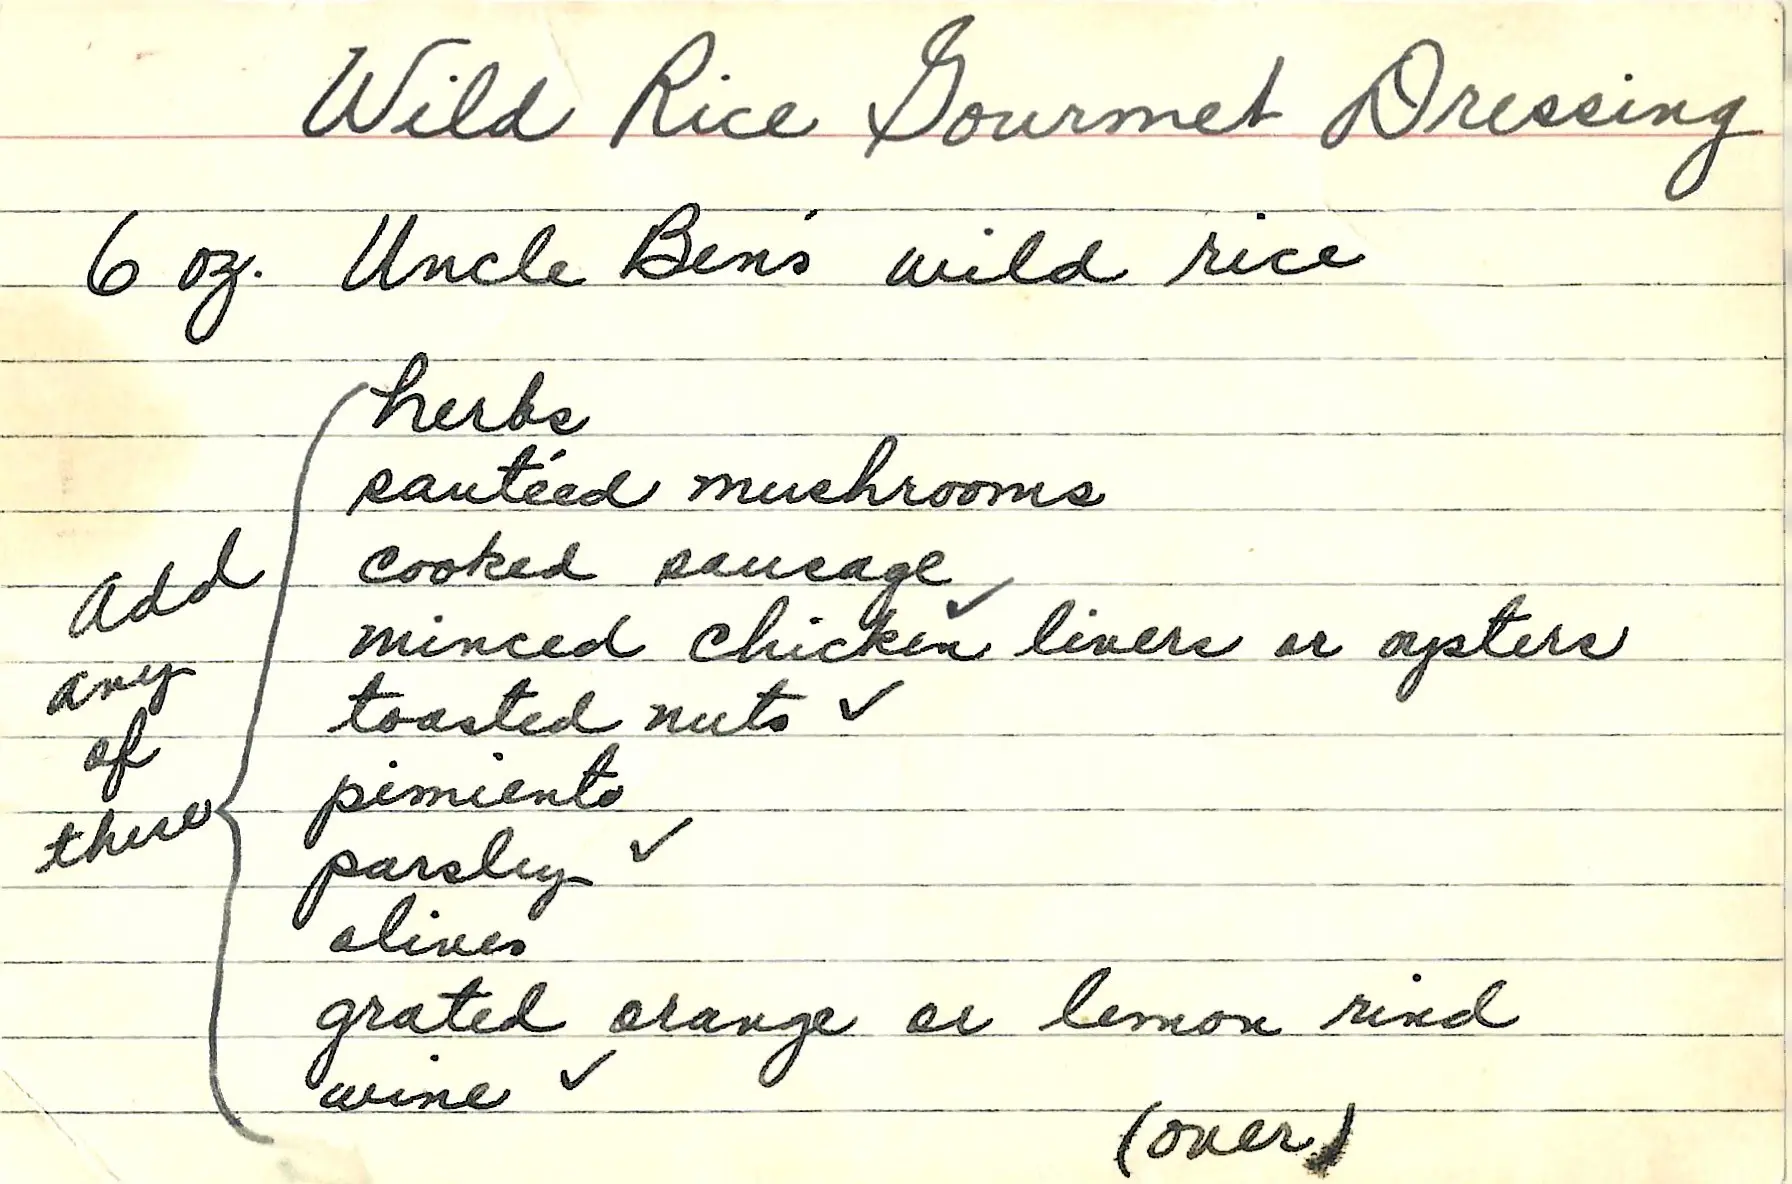 Wild Rice Gourmet Dressing
6 oz. Uncle Ben's wild rice
add
any
of
these
herbs
sautéed mushrooms
cooked sausage
minced chicken ✓ livers or oysters
toasted nuts ✓
pimiento
parsley ✓
olives
grated orange or lemon rind
wine ✓
(over)